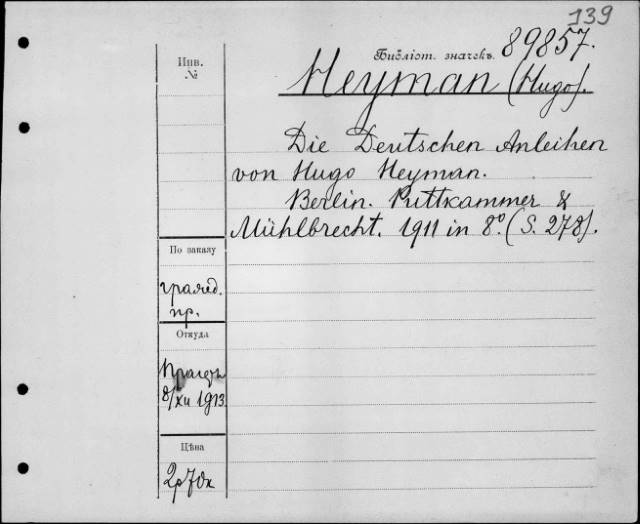 139
Библіот. значекъ 89857.
Инв.
№
Heyman (Hugo).
Die Deutschen Anleihen
von Hugo Heyman.
Berlin. Puttkammer &
Mühlbrecht. 1911 in 8º. (S. 278).
По заказу
гражд.
пр.
Откуда
8/XII 1913.
Цѣна
2р70к